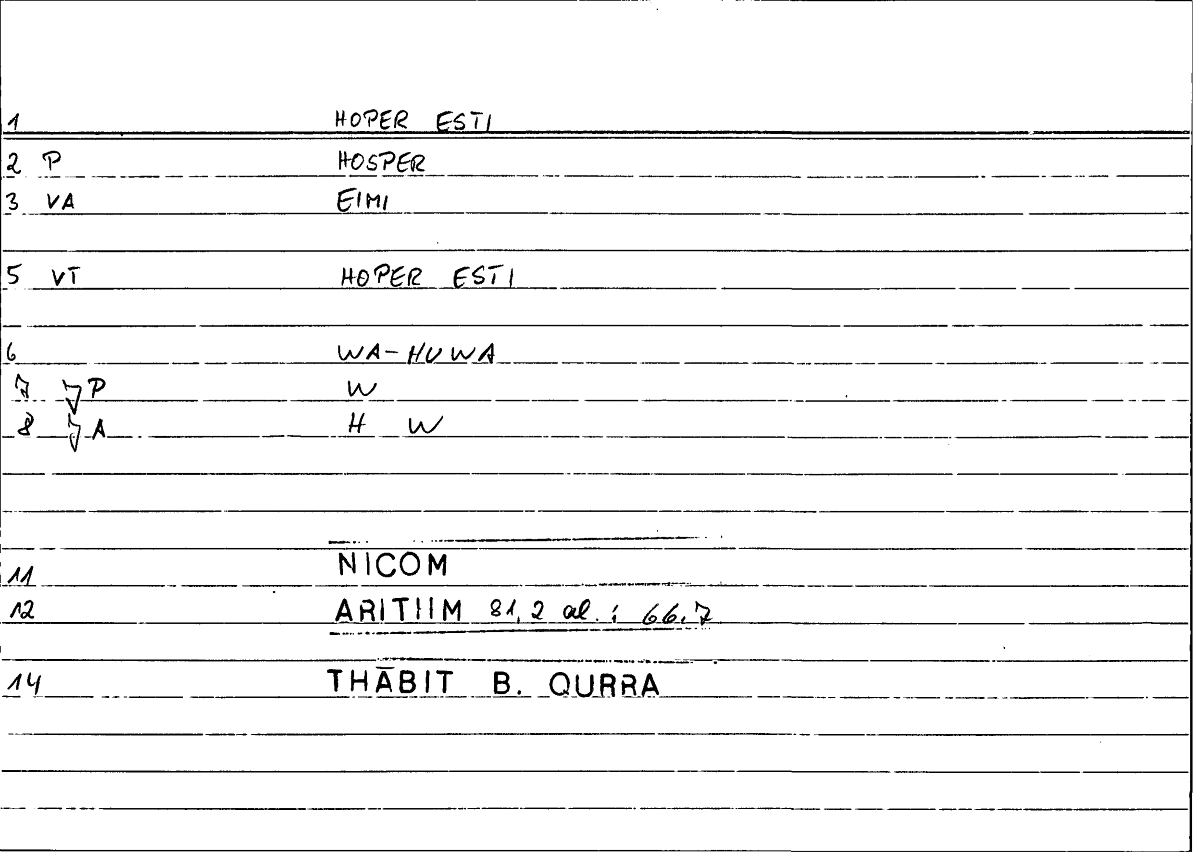 1 HOPER ESTI
2 P HOSPER
3 VA EIMI
5 VT HOPER ESTI
6 WA-HUWA
7 P W
8 A H W
11 NICOM
12 ARITIIM 81,2 al. : 66.7
14 THĀBIT B. QURRA